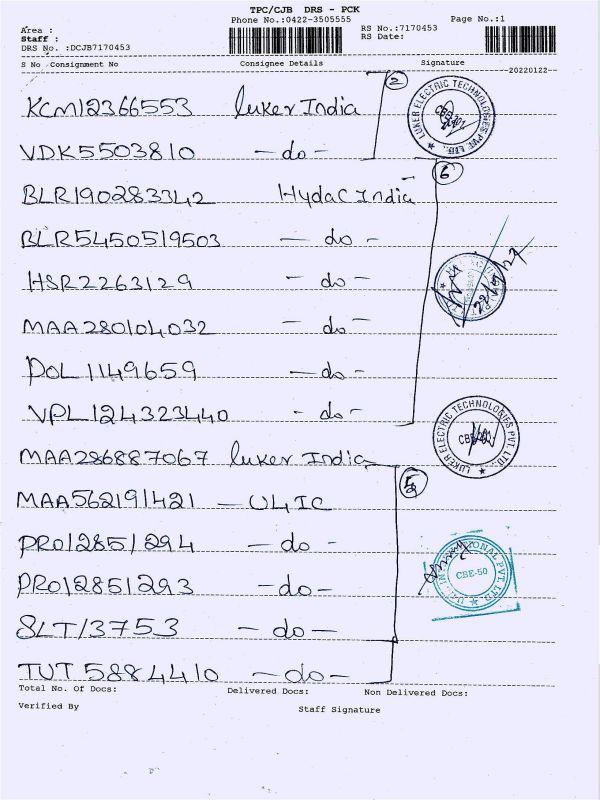 TPC/CJB DRS - PCK
Phone No.:0422-3505555
Page No.:1
Area :
Staff :
DRS No. :DCJB7170453
RS No.:7170453
RS Date:
S No Consignment No Consignee Details Signature
20220122
KCM12366553 luker India
2
VDK5503810 -do-
LUKER ELECTRIC TECHNOLOGIES PVT. LTD.
6
BLR190283342 Hydac India
BLR5450519503 -do-
HSR2263129 -do-
MAA280104032 -do-
POL1149659 -do-
VPL124323440 -do-
LUKER ELECTRIC TECHNOLOGIES PVT. LTD.
MAA286887067 luker India
MAA562191421 - U4IC
5
PRO12851294 -do-
PRO12851293 -do-
CBE-50
SLT13753 -do-
TUT5884410 -do-
Total No. Of Docs: Delivered Docs: Non Delivered Docs:
Verified By Staff Signature